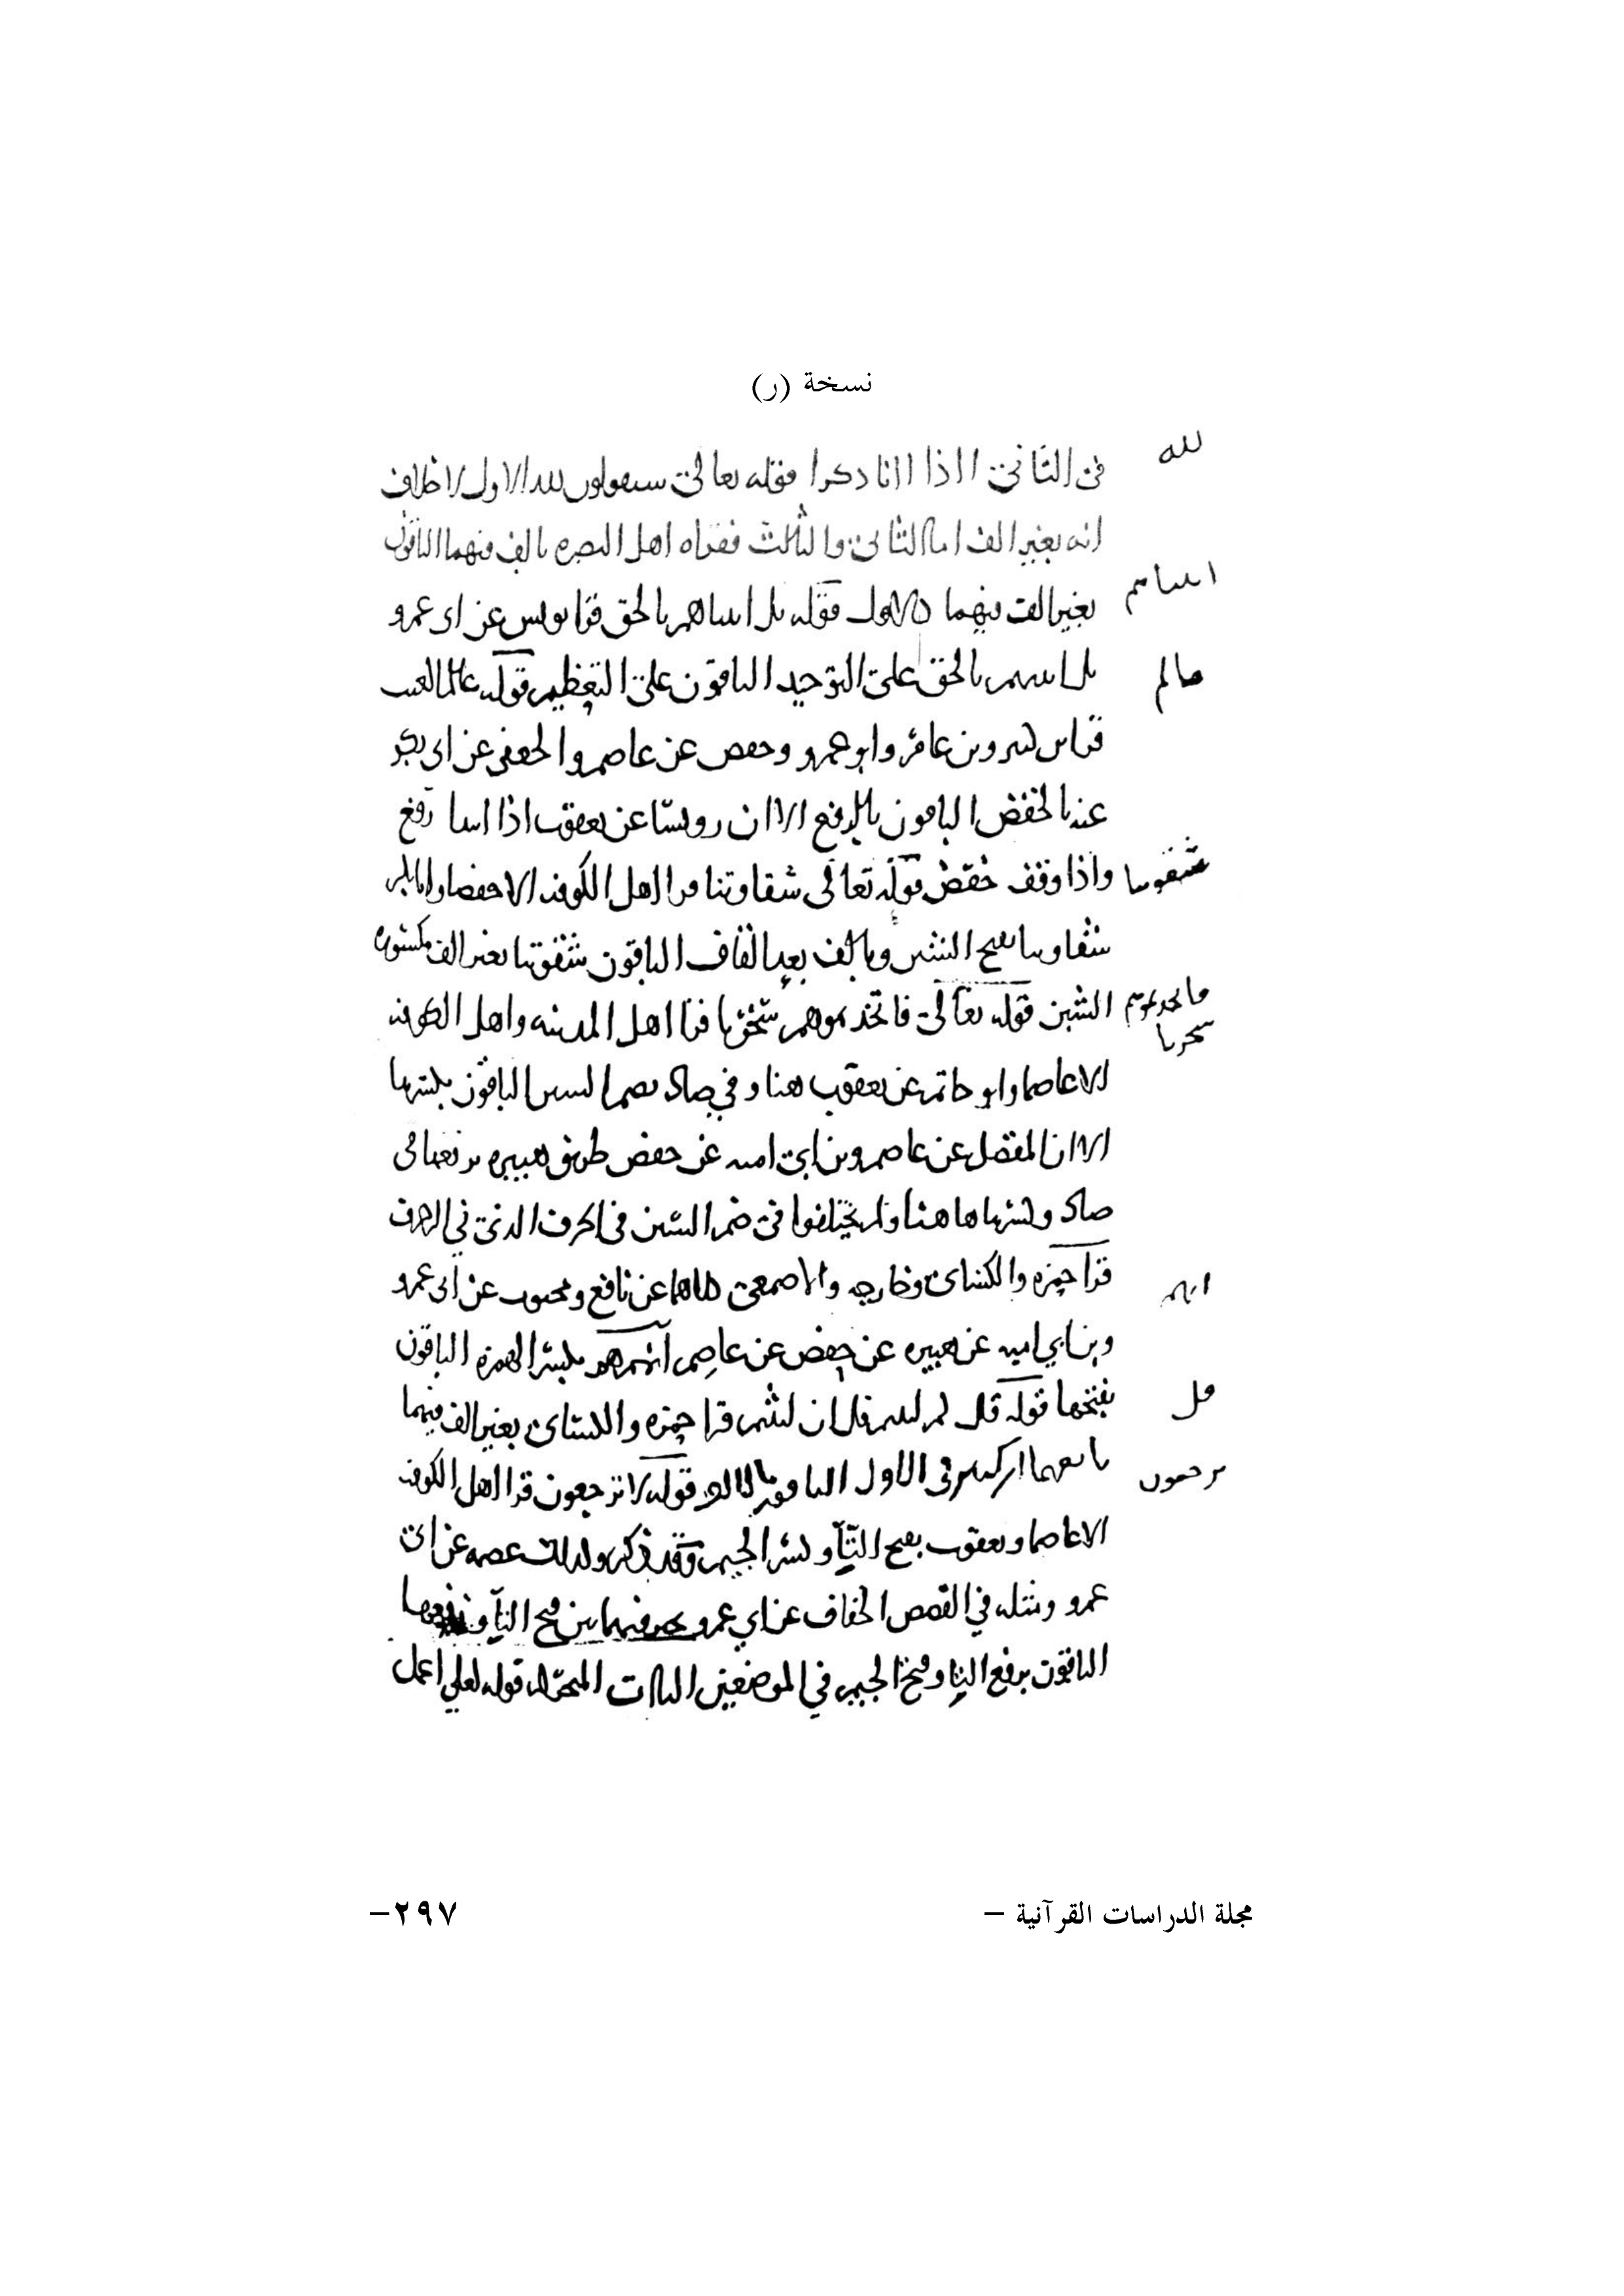 نسخة (ر)
لله
في الثاني ااذا اانا ذكرا قوله تعالى سيقولون لله الاول لا خلاف
انه بغير الف اما الثاني والثالث فقراه اهل البصره بالف فيهما الباقون
اتيناهم
بغير الف فيهما كالاول قوله بل اتيناهم بالحق قرا يونس عن ابي عمرو
عالم
بل اتيتهم بالحق على التوحيد الباقون على التعظيم قوله عالم الغيب
قرا بن كثير وبن عامر وابو عمرو وحفص عن عاصم والجعفي عن ابي بكر
عنه بالخفض الباقون بالرفع الا ان رويسا عن يعقوب اذا ابتدا رفع
شقوتنا
واذا وقف خفض قوله تعالى شقاوتنا قرا اهل الكوفه الا حفصا وابا بكر
شقاوتنا بفتح الشين وبالف بعد القاف الباقون شقوتنا بغير الف مكسوره
فاتخذتموهم
سخريا
الشين قوله تعالى فاتخذتموهم سخريا قرا اهل المدينه واهل الكوفه
الا عاصما وابو حاتم عن يعقوب هنا وفي صاد بضم السين الباقون بكسرها
الا ان المفضل عن عاصم وبن ابي اميه عن حفص طريق هبيره يرفعها في
صاد وكسرها هاهنا ولم يختلفوا في ضم السين في الحرف الذي في الزخرف
انهم
قرا حمزه والكسائي وخارجه والاصمعي كلاهما عن نافع ومحبوب عن ابي عمرو
وبن ابي اميه عن هبيره عن حفص عن عاصم انهم هم بكسر الهمزه الباقون
قل
بفتحها قوله قل كم لبثتم قل ان لبثتم قرا حمزه والكسائي بغير الف فيهما
ترجعون
تابعهما بن كثير في الاول الباقون بالالف قوله لا ترجعون قرا اهل الكوفه
الا عاصما ويعقوب بفتح التآ وكسر الجيم وقد ذكر وكذلك عصمه عن ابي
عمرو ومثله في القصص الخفاف عن ابي عمرو يخير فيهما بين فتح التآ و
الباقون برفع التا وفتح الجيم في الموضعين الياات المتحركه قوله لعلي اعمل
مجلة الدراسات القرآنية –
٢٩٧–